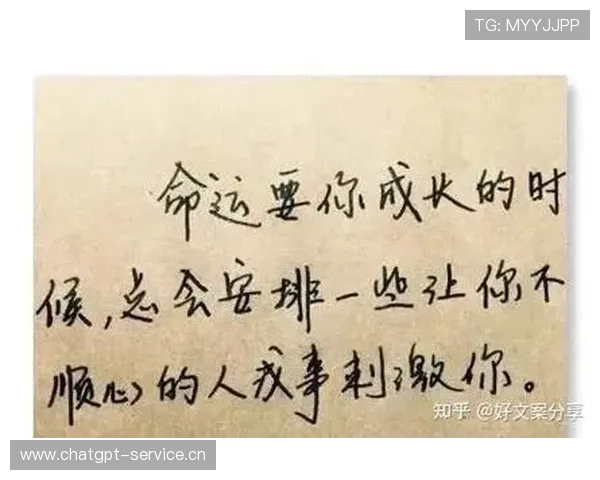 TG: MYYJJPP
命运要你成长的时
候,总会安排一些让你不
顺心的人或事刺激你。
知乎 @好文案分享
www.chatgpt-service.cn